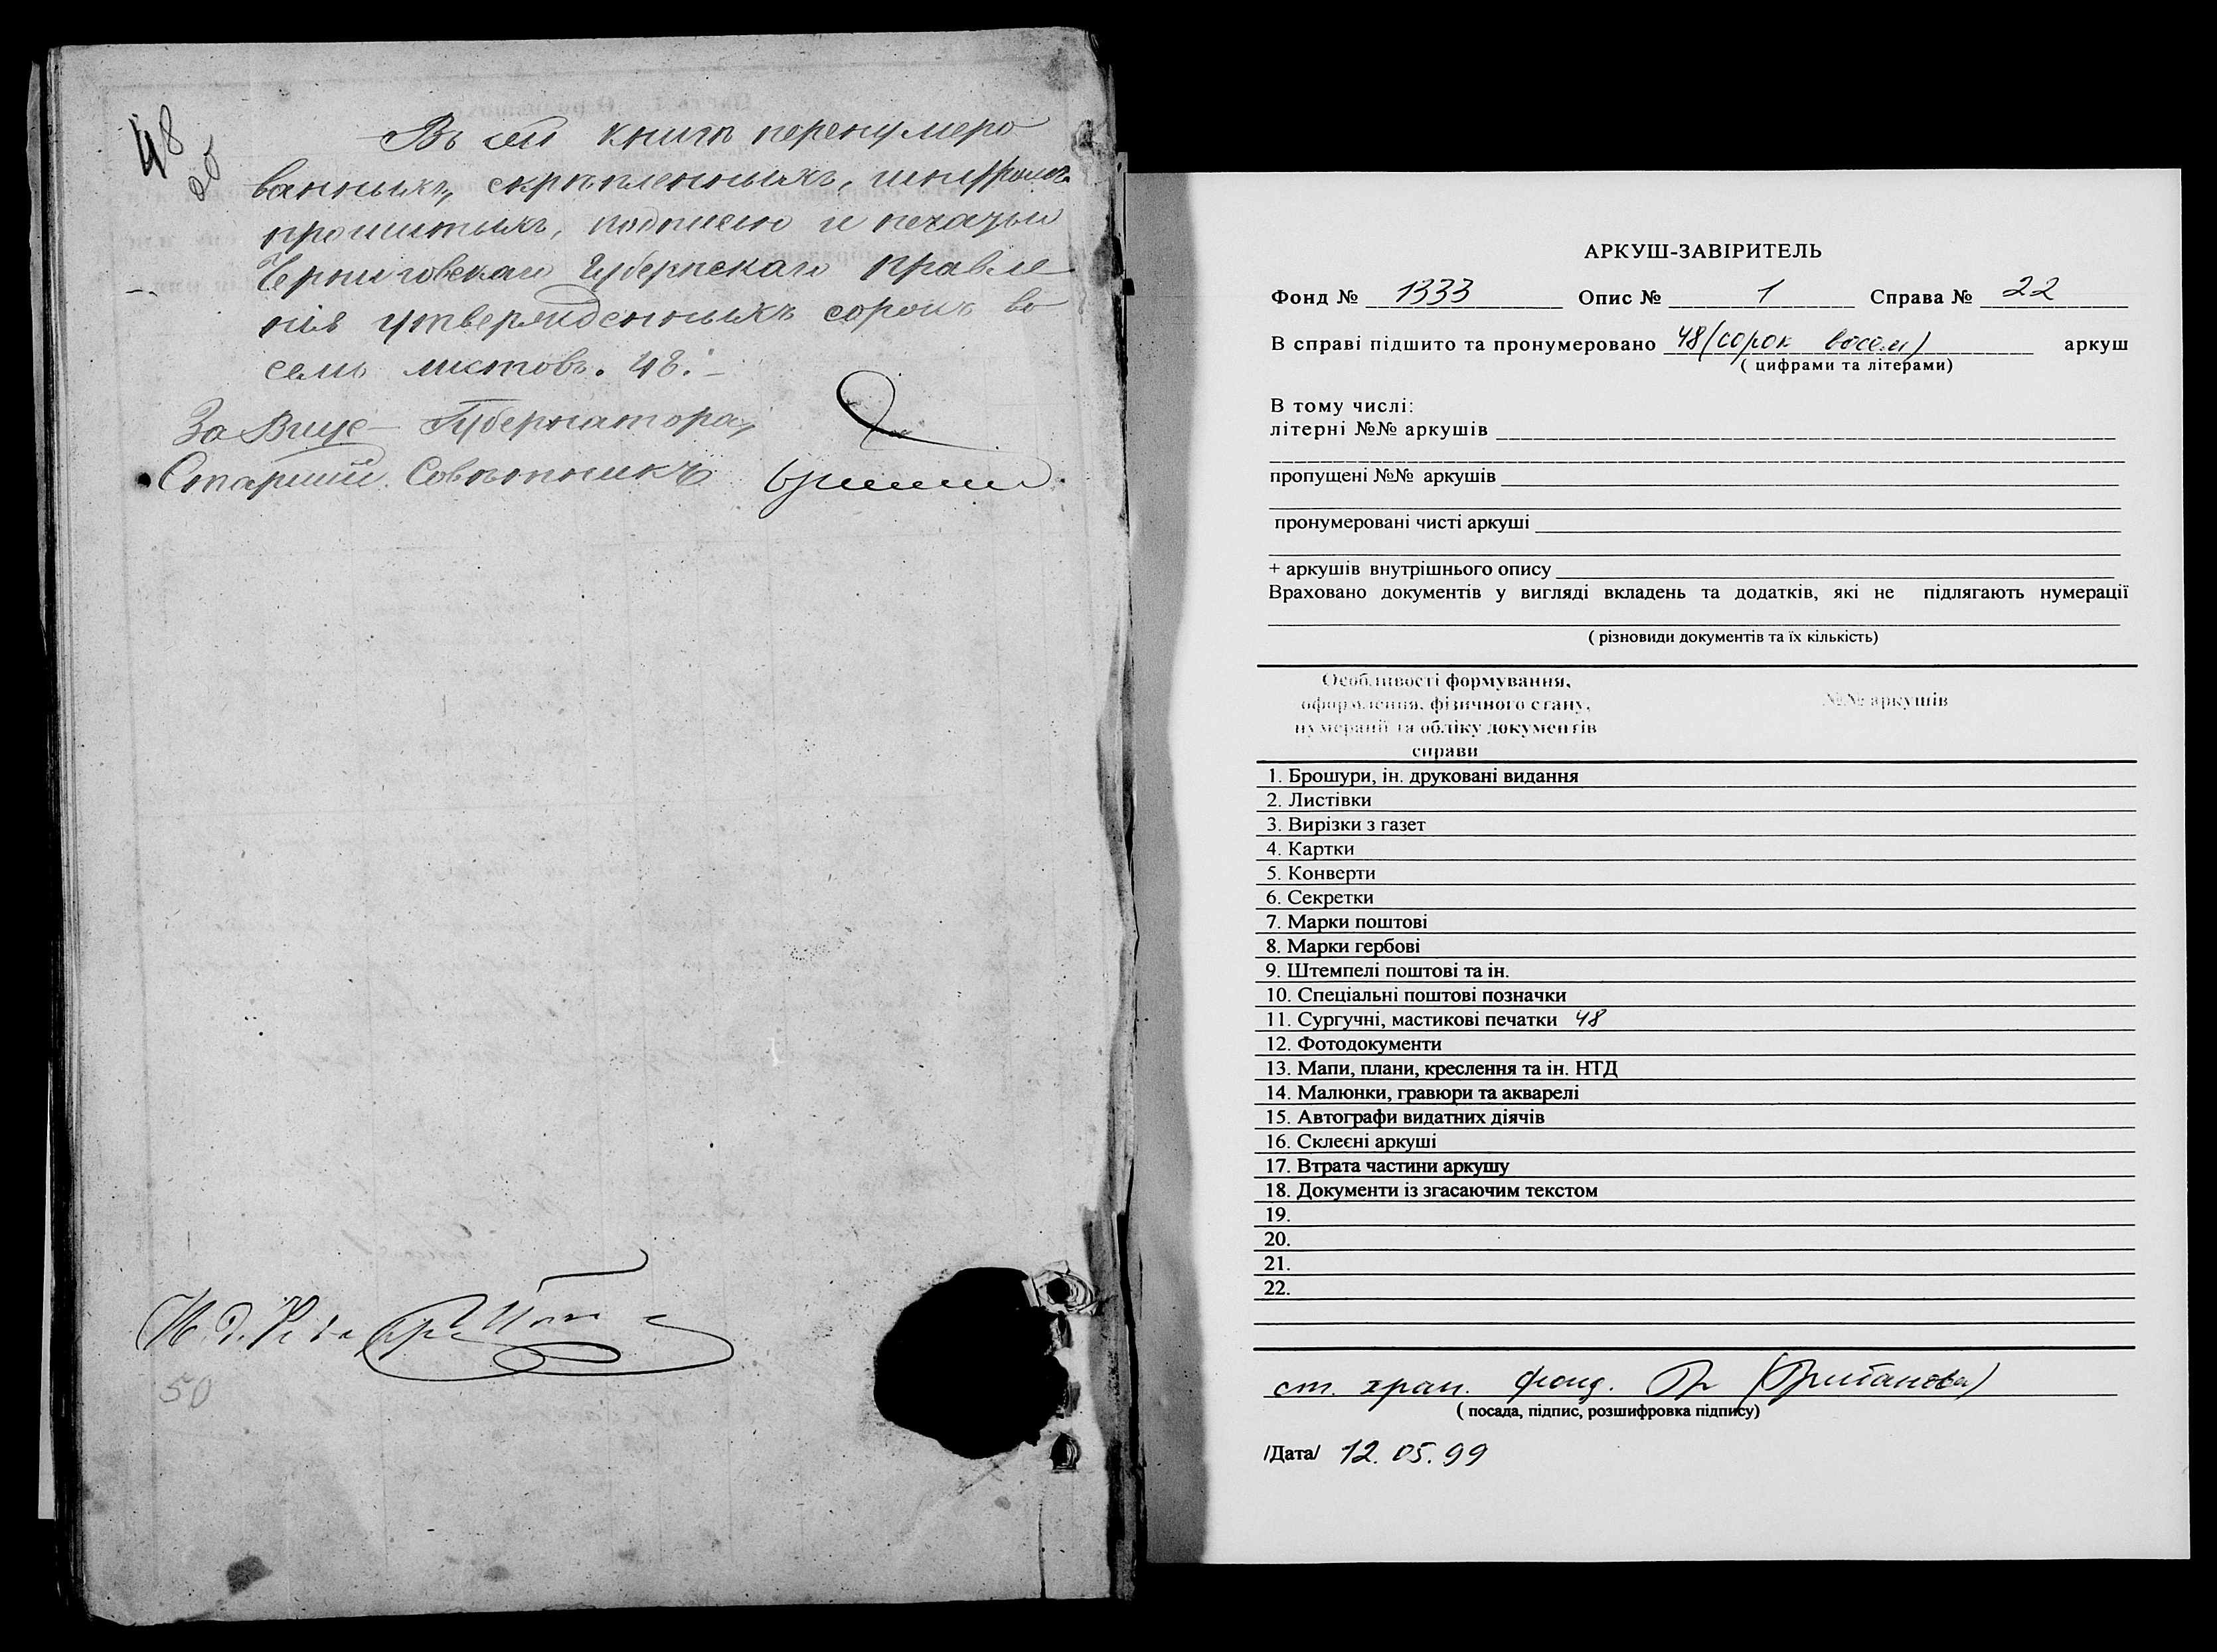 48
Въ сей книгѣ перенумеро
ванныхъ, скрѣпленныхъ, шнуромъ
прошитыхъ, подписью и печатью
Черниговскаго Губернскаго Правле
нія утвержденныхъ сорокъ во
семь листовъ. 48.
За Вице-Губернатора,
Старшій Совѣтникъ
И. д.
50
АРКУШ-ЗАВІРИТЕЛЬ
Фонд № 1333 Опис № 1 Справа № 22
В справі підшито та пронумеровано 48 (сорок восем) аркуш
( цифрами та літерами)
В тому числі:
літерні №№ аркушів
пропущені №№ аркушів
пронумеровані чисті аркуші
+ аркушів внутрішнього опису
Враховано документів у вигляді вкладень та додатків, які не підлягають нумерації
( різновиди документів та їх кількість)
Особливості формування, №№ аркушів
оформлення, фізичного стану,
нумерації та обліку документів
справи
1. Брошури, ін. друковані видання
2. Листівки
3. Вирізки з газет
4. Картки
5. Конверти
6. Секретки
7. Марки поштові
8. Марки гербові
9. Штемпелі поштові та ін.
10. Спеціальні поштові позначки
11. Сургучні, мастикові печатки 48
12. Фотодокументи
13. Мапи, плани, креслення та ін. НТД
14. Малюнки, гравюри та акварелі
15. Автографи видатних діячів
16. Склеєні аркуші
17. Втрата частини аркушу
18. Документи із згасаючим текстом
19.
20.
21.
22.
ст. хран. фонд.
( посада, підпис, розшифровка підпису)
/Дата/ 12.05.99